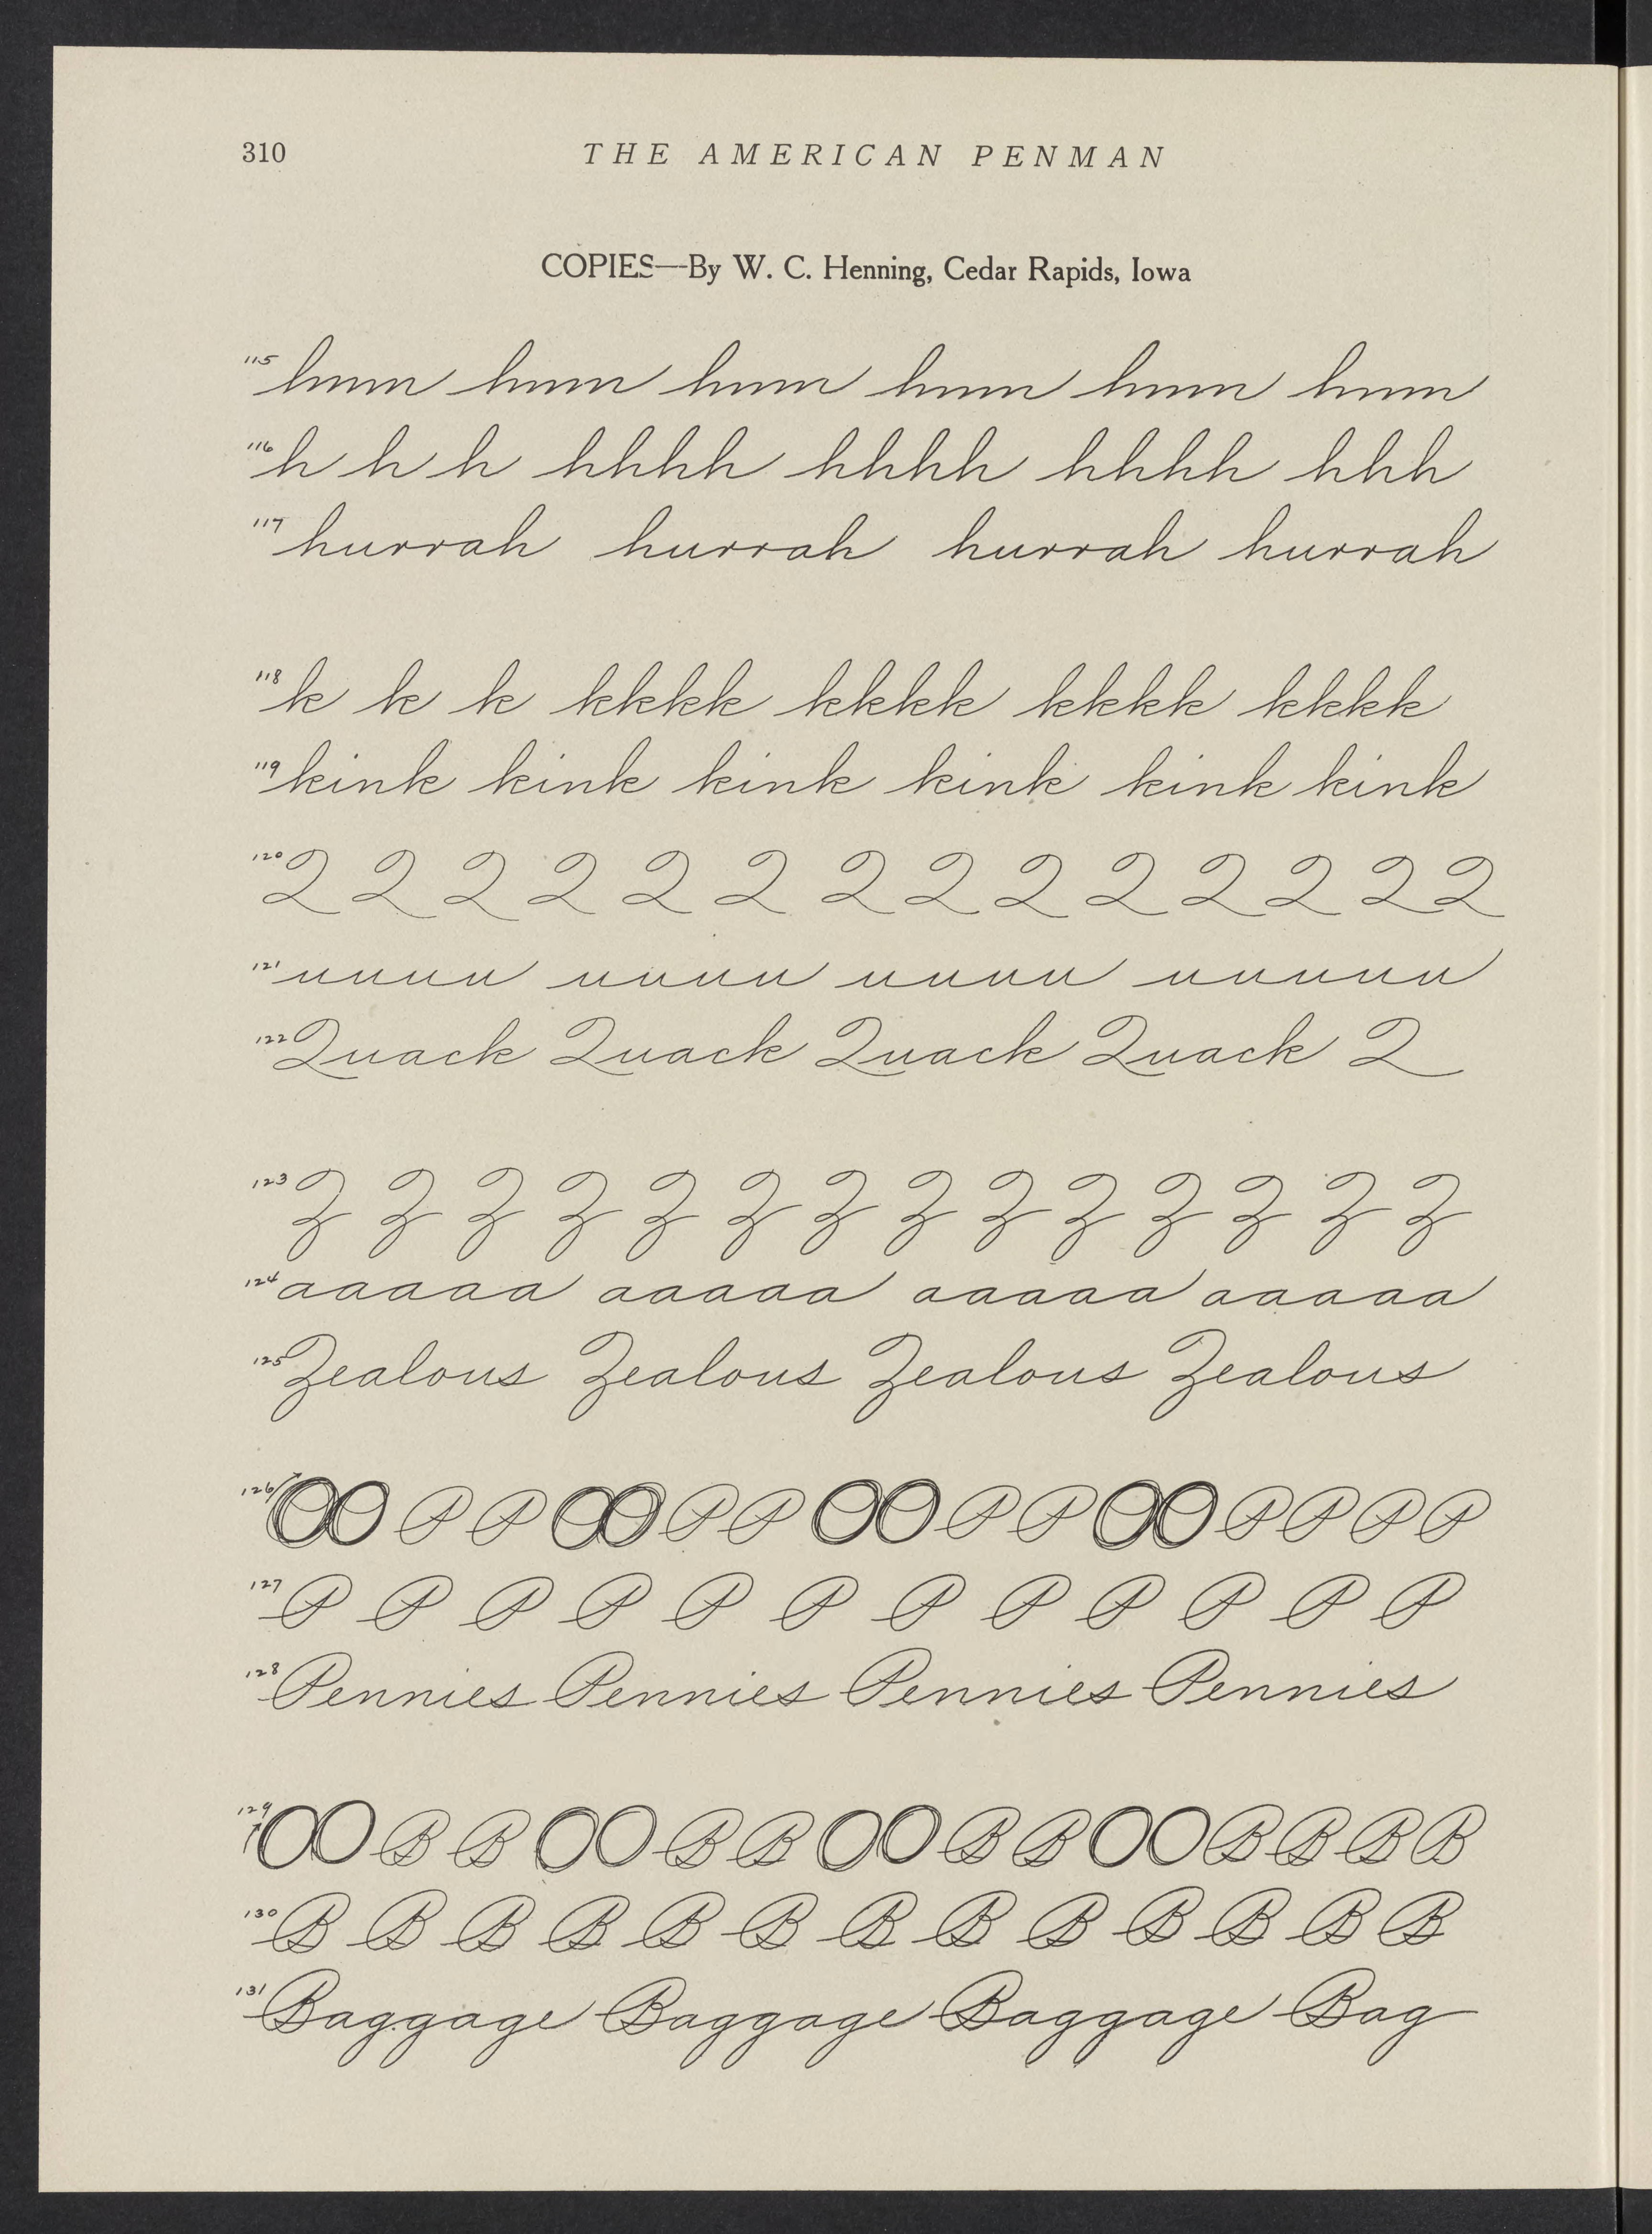 310 THE AMERICAN PENMAN
COPIES—By W. C. Henning, Cedar Rapids, Iowa
115 hmm hmm hmm hmm hmm hmm
116 h h h hhhh hhhh hhhh hhh
117 hurrah hurrah hurrah hurrah
118 k k k kkkk kkkk kkkk kkkk
119 kink kink kink kink kink kink
120 Q Q Q Q Q Q Q Q Q Q Q Q Q Q
121 uuuu uuuu uuuu uuuuu
122 Quack Quack Quack Quack Q
123 Z Z Z Z Z Z Z Z Z Z Z Z Z Z
124 aaaaa aaaaa aaaaa aaaaa
125 Zealous Zealous Zealous Zealous
126 OO P P OO P P OO P P OO P P P P
127 P P P P P P P P P P P P
128 Pennies Pennies Pennies Pennies
129 OO B B OO B B OO B B OO B B B B
130 B B B B B B B B B B B B B
131 Baggage Baggage Baggage Bag